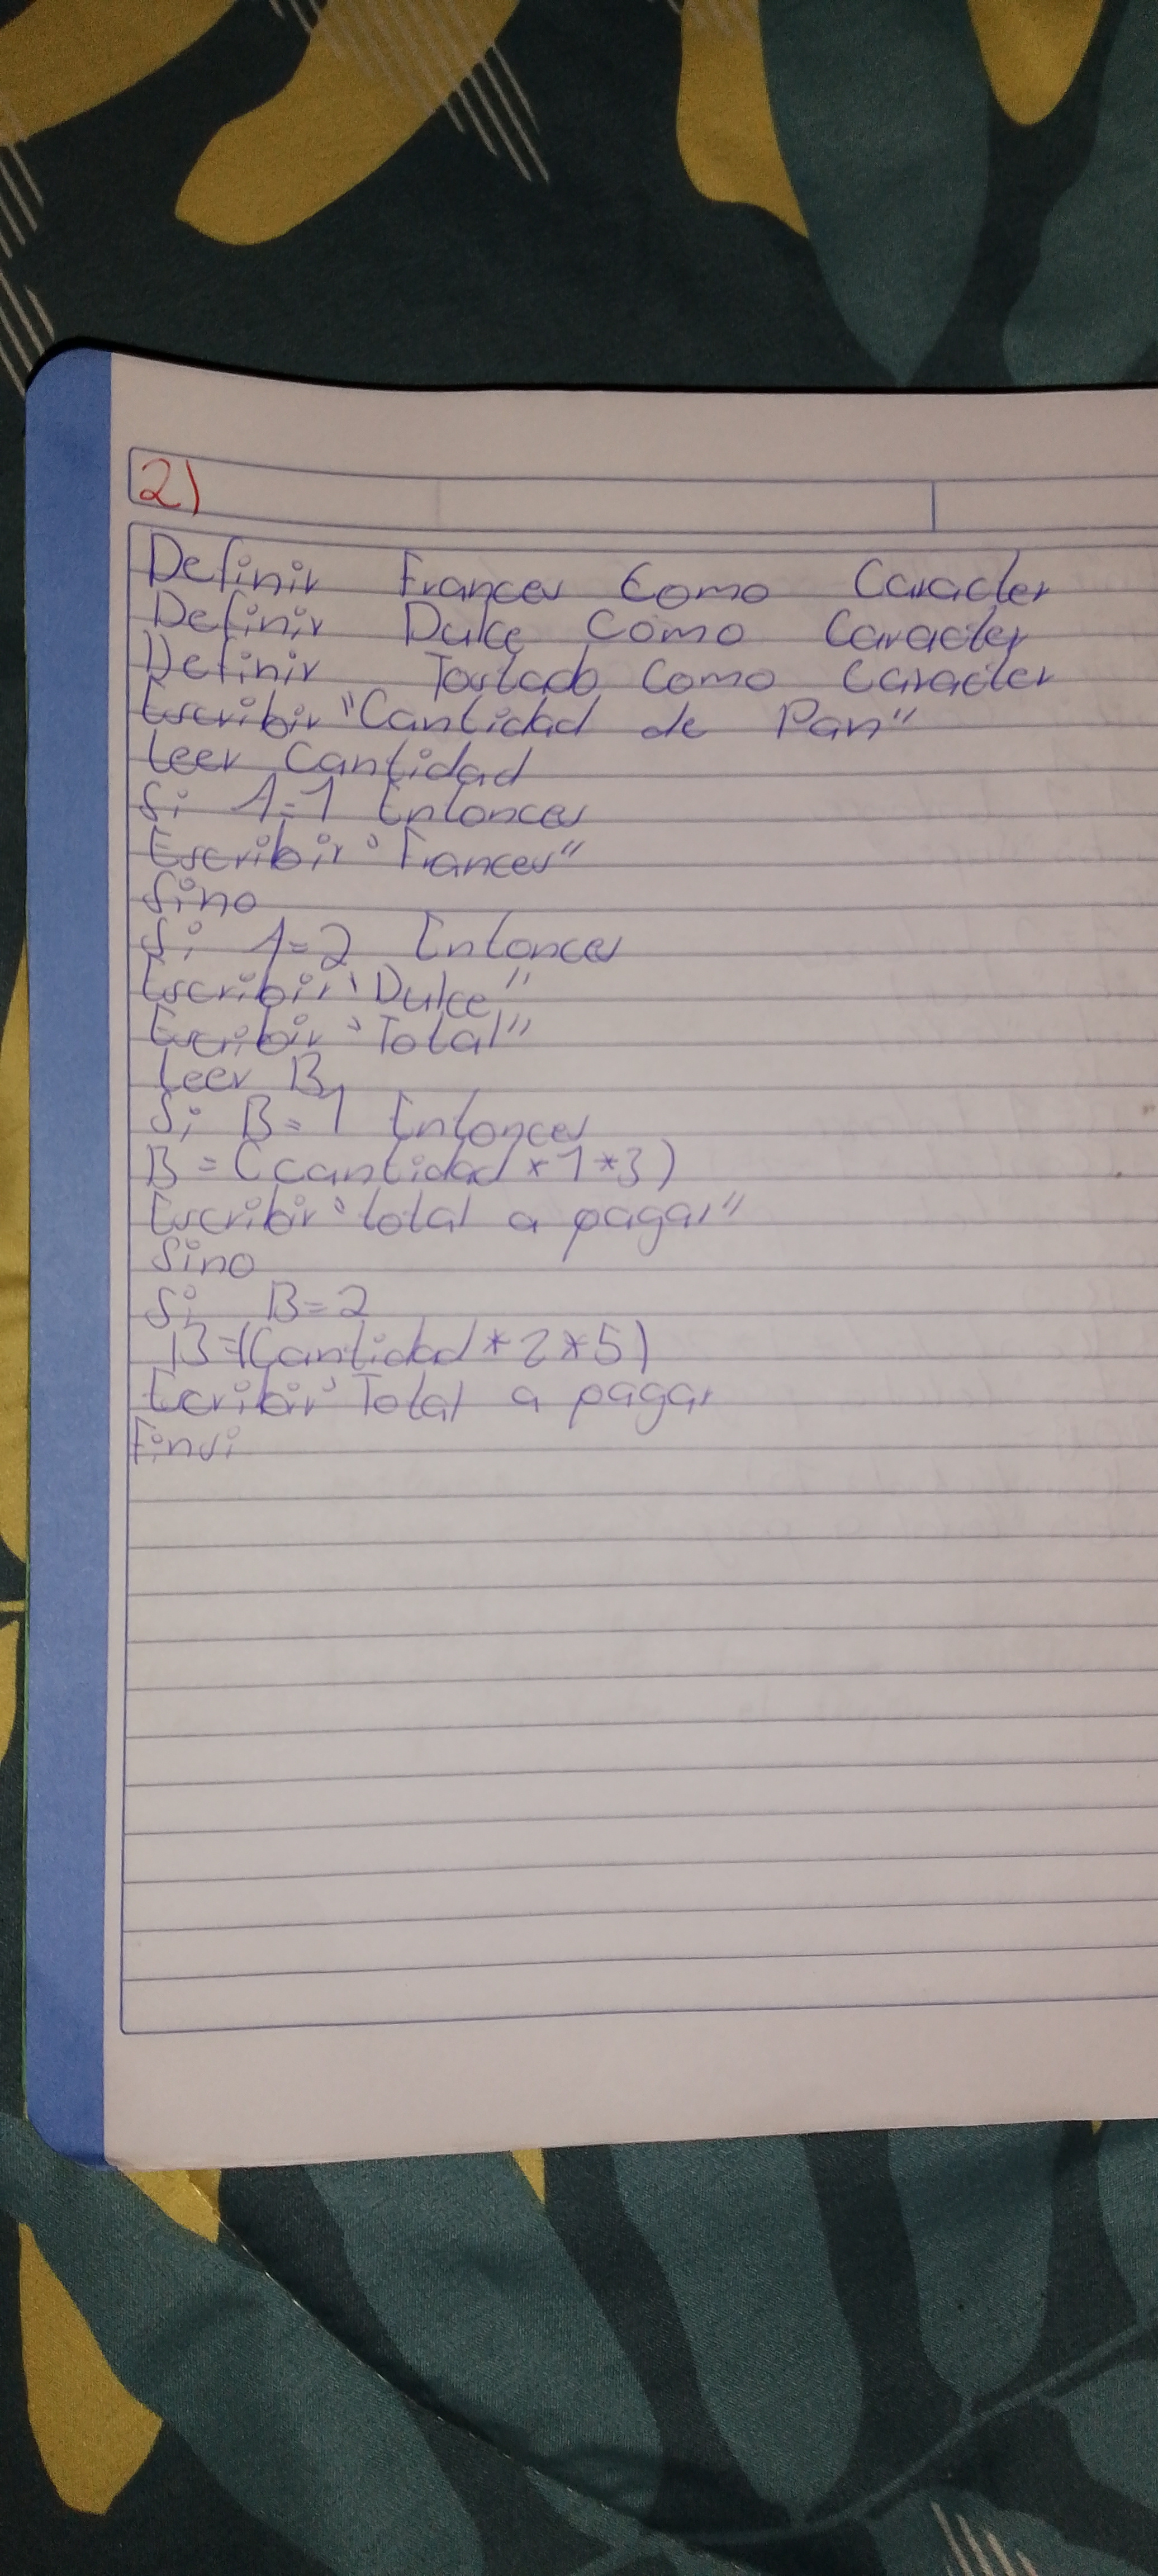 2)
Definir Frances Como Caracter
Definir Dulce Como Caracter
Definir Tostado Como Caracter
Escribir "Cantidad de Pan"
Leer Cantidad
Si A=1 Entonces
Escribir "Frances"
Sino
Si A=2 Entonces
Escribir "Dulce"
Escribir "Total"
Leer B
Si B=1 Entonces
B=(cantidad*1*3)
Escribir "total a pagar"
Sino
Si B=2
B=(Cantidad*2*5)
Ecribir "Total a pagar
Finsi